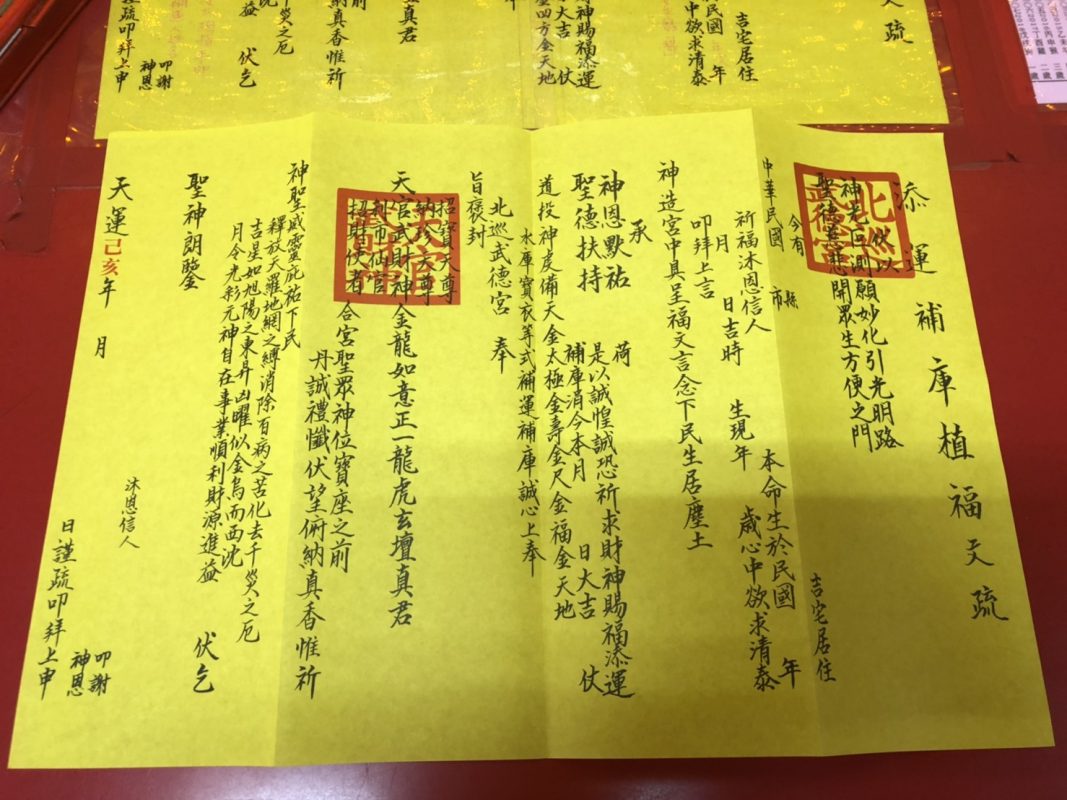 添運補庫植福天疏
伏以
神光叵測願妙化引光明路
聖德慈悲開眾生方便之門
今有
中華民國 縣市 吉宅居住
祈福沐恩信人 本命生於民國 年
月 日吉時 生現年 歲心中欲求清泰
叩拜上言
神造宮中具呈福文言念下民生居塵土
承
神恩默祐 荷
聖德扶持 是以誠惶誠恐祈求財神賜福添運
補庫消今本月 日大吉 仗
道投神虔備天金太極金壽金尺金福金天地
水庫寶衣等式補運補庫誠心上奉
北巡武德宮 奉
旨褒封
天官武財神金龍如意正一龍虎玄壇真君
招寶天尊
納珍天尊
利市仙官
招財使者 合宮聖眾神位寶座之前
丹誠禮懺伏望俯納真香惟祈
神聖威靈庇祐下民
釋放天羅地網之縛消除百病之苦化去千災之厄
吉星如旭陽之東昇凶曜似金烏而西沈
月令光彩元神自在事業順利財源進益 伏乞
聖神朗鑒
沐恩信人
叩謝
神恩
天運己亥年 月 日謹疏叩拜上申
天疏
吉宅居住
民國 年
中欲求清泰
神賜福添運
大吉 仗
四方金天地
真君
前
真香惟祈
千災之厄
沈
益 伏乞
叩謝
神恩
疏叩拜上申